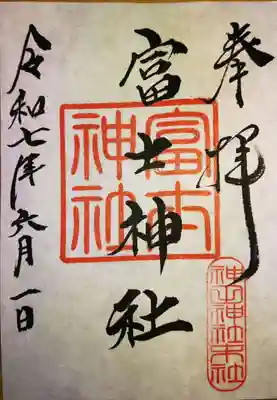 奉拝
富士神社
富士神社
神山神社末社
令和七年六月一日